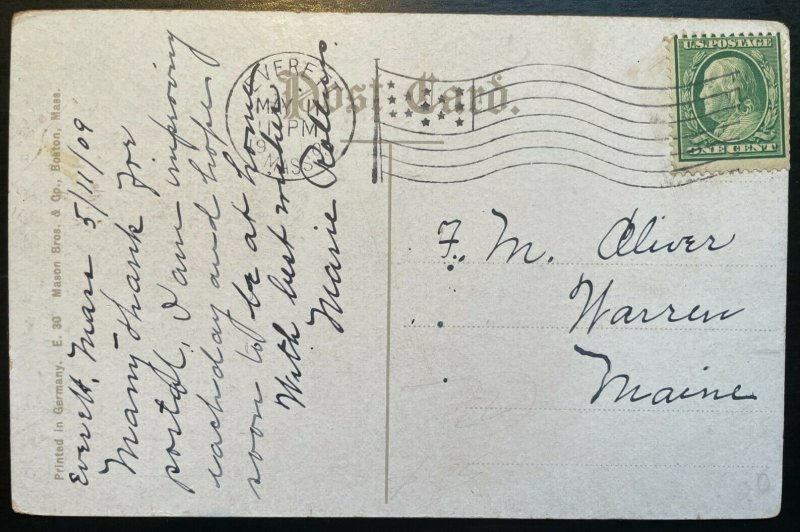 Post Card.
U.S. POSTAGE
ONE CENT
EVERETT
MAY 11
PM
MASS.
F. M. Oliver
Warren
Maine
Everett, Mass 5/11/09
Many thank for
portal. I am improving
each day and hope
soon to be at home
With best wishes
Marie
Printed in Germany. E. 30 Mason Bros. & Co., Boston, Mass.